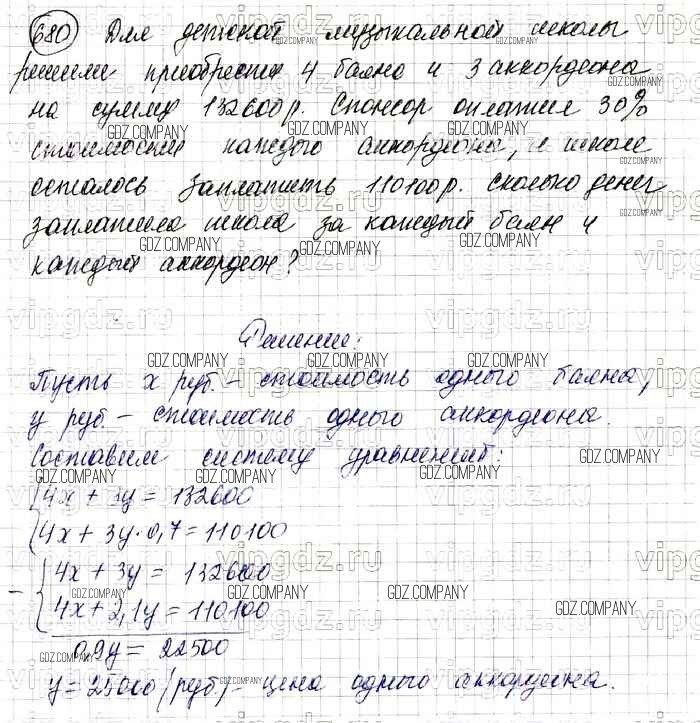 680 Для детской музыкальной школы
решили приобрести 4 баяна и 3 аккордеона
на сумму 132600 р. Спонсор оплатил 30%
стоимости каждого аккордеона, и школе
осталось заплатить 110100 р. Сколько денег
заплатила школа за каждый баян и
каждый аккордеон?
Решение:
Пусть x руб. – стоимость одного баяна,
y руб. – стоимость одного аккордеона.
Составим систему уравнений:
{4x + 3y = 132600
{4x + 3y · 0,7 = 110100
– {4x + 3y = 132600
{4x + 2,1y = 110100
0,9y = 22500
y = 25000 (руб.) – цена одного аккордеона.
GDZ.COMPANY
vipgdz.ru